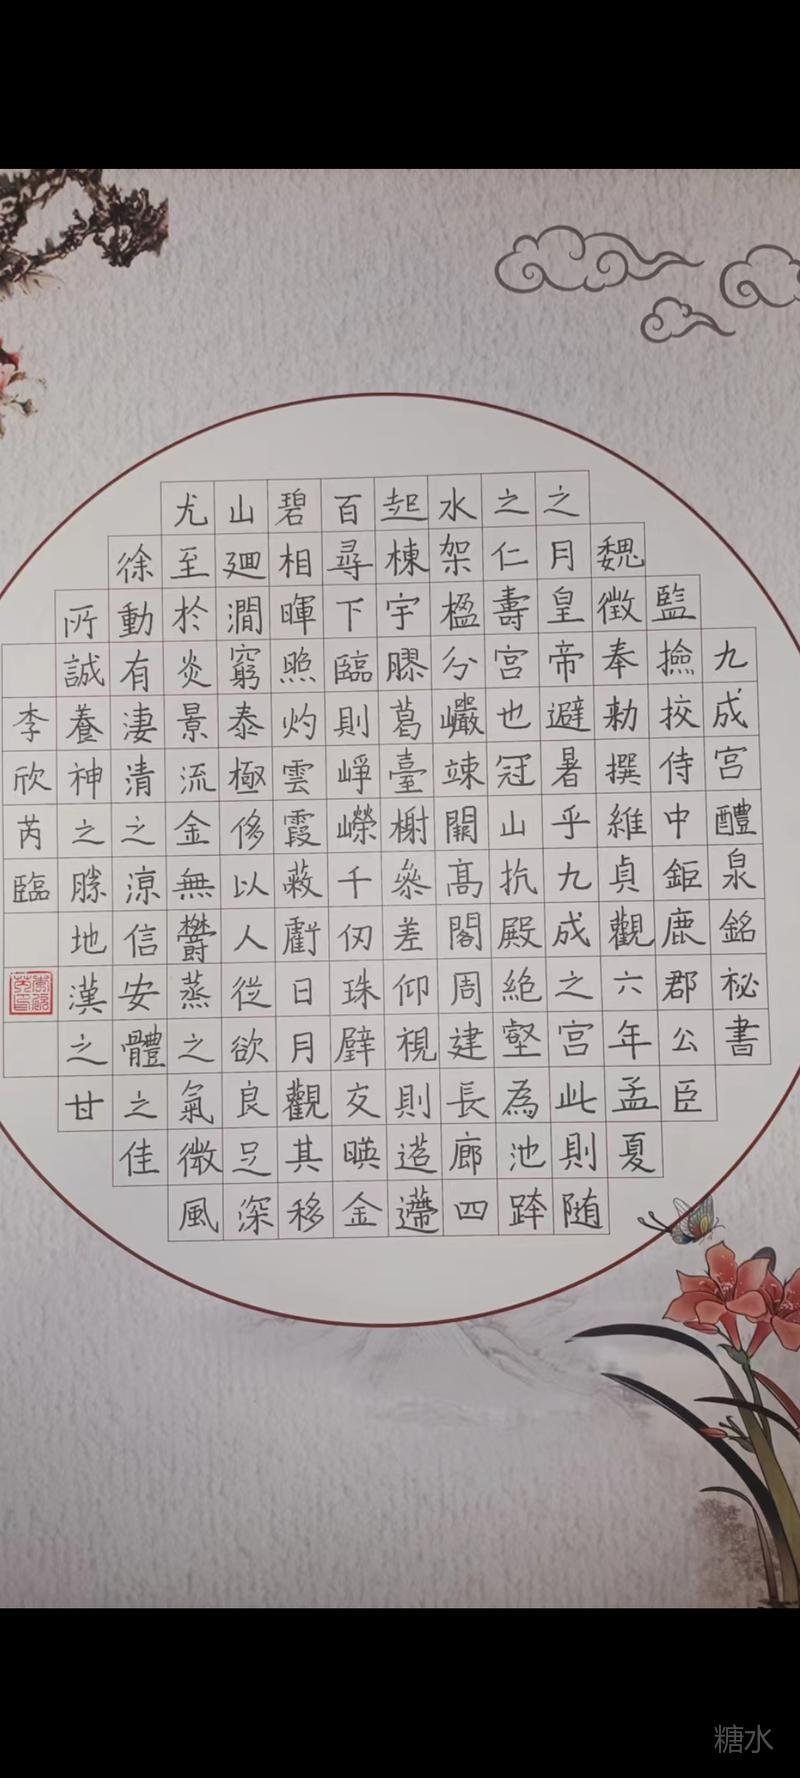 九成宮醴泉銘秘書
監撿挍侍中鉅鹿郡公臣
魏徵奉勑撰維貞觀六年孟夏
之月皇帝避暑乎九成之宮此則随
之仁壽宮也冠山抗殿絶壑為池跨
水架楹分巗竦闕高閣周建長廊四
起棟宇膠葛臺榭叅差仰視則迢遰
百尋下臨則崢嶸千仞珠壁交暎金
碧相暉照灼雲霞蔽虧日月觀其移
山迴澗窮泰極侈以人從欲良足深
尤至於炎景流金無欝蒸之氣微風
徐動有淒清之涼信安體之佳
所誠養神之勝地漢之甘
李欣芮臨
糖水